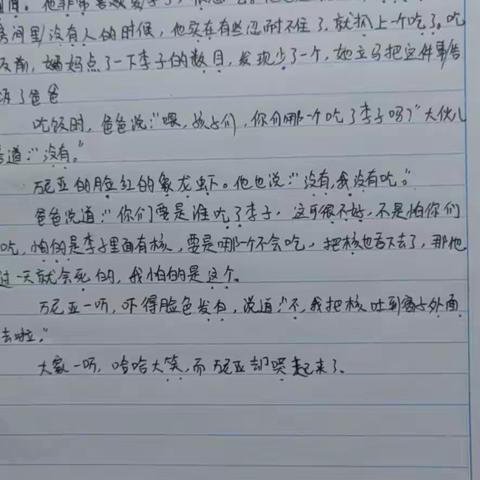 房间里没有人的时候，他实在有些忍耐不住了，就抓上一个吃了。吃
饭前，妈妈点了一下李子的数目，发现少了一个，她立马把这件事告
诉了爸爸
吃饭时，爸爸说：“喂，孩子们，你们哪一个吃了李子吗？”大伙儿
道：“没有。”
瓦尼亚的脸红的象龙虾。他也说：“没有，我没有吃。”
爸爸说道：“你们要是谁吃了李子，这可很不好，不是怕你们
吃，怕的是李子里面有核，要是哪个不会吃，把核也吞下去了，那他
过一天就会死的，我怕的是这个。
瓦尼亚一听，吓得脸色发白，说道：“不，我把核吐到窗子外面
去啦。”
大家一听，哈哈大笑，而瓦尼亚却哭起来了。